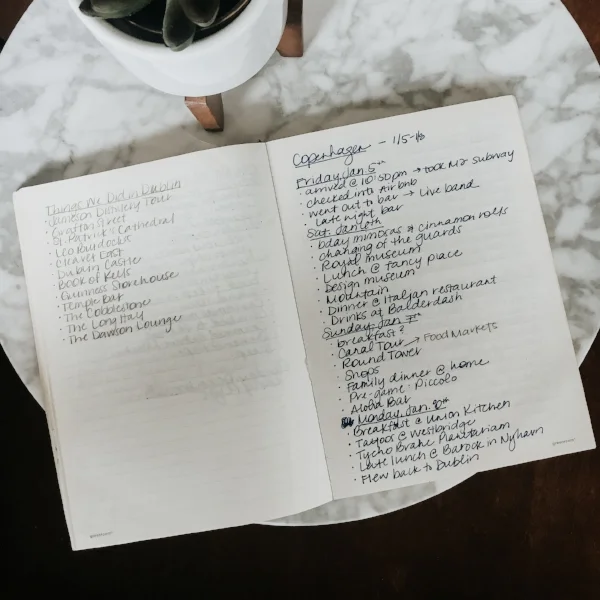 Things We Did in Dublin
· Jameson Distillery Tour
· Grafton Street
· St. Patrick's Cathedral
· Leo Burdocks
· Cleaver East
· Dublin Castle
· Book of Kells
· Guinness Storehouse
· Temple Bar
· The Cobblestone
· The Long Hall
· The Dawson Lounge
Copenhagen - 1/5-1/8
Friday, Jan 5th
· arrived @ 10:50pm → took M2 subway
· checked into Airbnb
· went out to bar → Live band
· Late night bar
Sat. Jan 6th
· bday mimosas & cinnamon rolls
· changing of the guards
· Royal museum
· Lunch @ fancy place
· Design museum
· Mountain
· Dinner @ Italian restaurant
· Drinks at Balderdash
Sunday, Jan 7th
· breakfast?
· Canal Tour → Food Markets
· Round Tower
· Shops
· Family dinner @ home
· Pre-game - Piccolo
· Aloha Bar
Monday, Jan.
· Breakfast @ Union Kitchen
· Tattoo @ Westbridge
· Tycho Brahe Planetariam
· Late lunch @ Barock in Nyhavn
· Flew back to Dublin